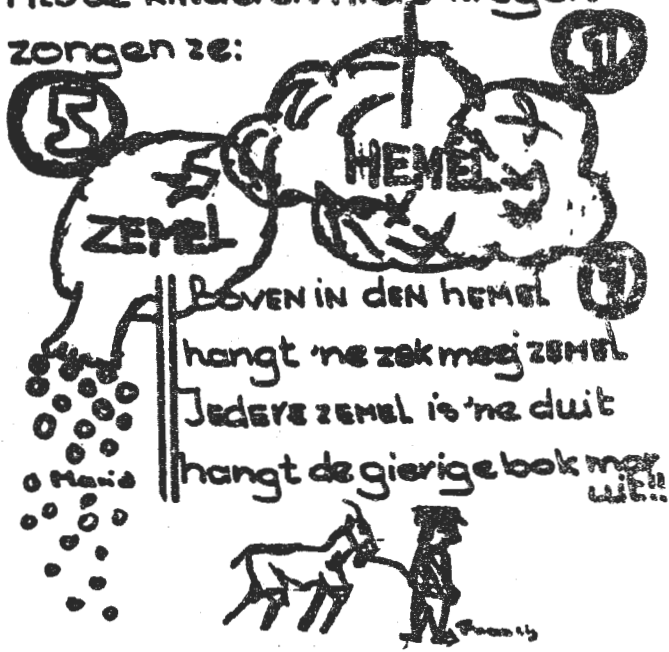 zongen ze:
1
5
HEMEL
ZEMEL
BOVEN IN den hemel
hangt 'ne zak meej ZEMEL
JEDERE ZEMEL is 'ne duit
hangt de gierige bok mar
uit!!
Maria